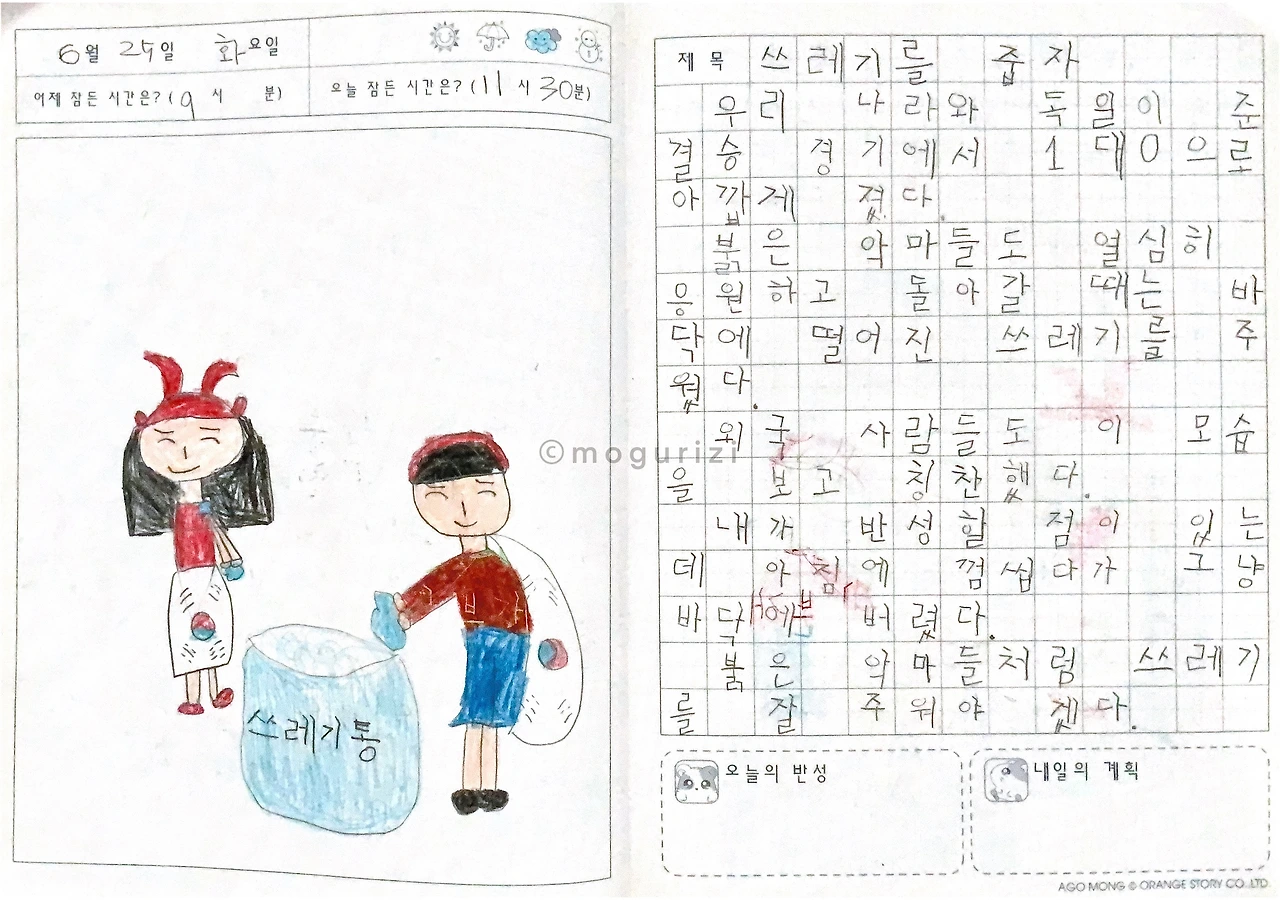 6월 25일 화요일
어제 잠든 시간은? (9시 분)
오늘 잠든 시간은? (11시 30분)
쓰레기통
제목 쓰레기를 줍자
우리 나라와 독일이 준
결승 경기에서 1대0으로
아깝게 졌다.
붉은 악마들도 열심히
응원하고 돌아갈 때는 바
닥에 떨어진 쓰레기를 주
웠다.
외국 사람들도 이 모습
을 보고 칭찬했다.
내가 반성할 점이 있는
데 아침에 껌씹다가 그냥
바닥에 버렸다.
붉은 악마들처럼 쓰레기
를 잘 주워야 겠다.
오늘의 반성
내일의 계획
AGO MONG © ORANGE STORY CO. LTD.
©mogurizi